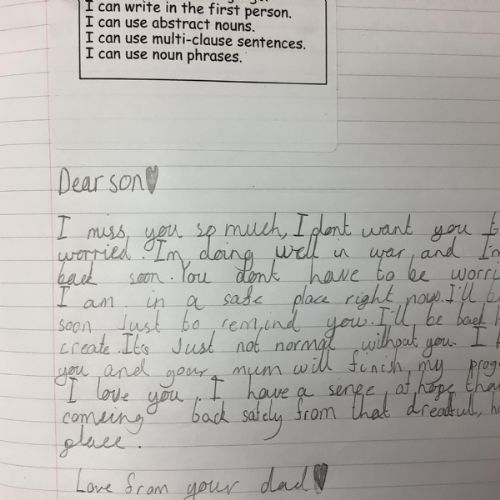 I can write in the first person.
I can use abstract nouns.
I can use multi-clause sentences.
I can use noun phrases.
Dear son
I miss you so much, I dont want you
worried. I'm doing well in war, and I'm
back soon. You dont have to be
I am in a safe place right now. I'll
soon Just to remind you. I'll be back
create. It's Just not normal without you. I
you and your mum will finish my
I love you. I have a sence of hope
comeing back safely from that dreadful,
place.
Love from your dad